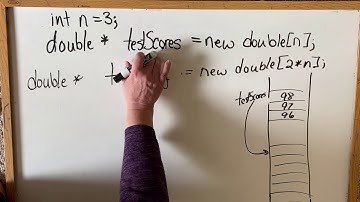 int n = 3;
double * testScores = new double[n];
double * t := new double[2*n];
testScores
98
97
96